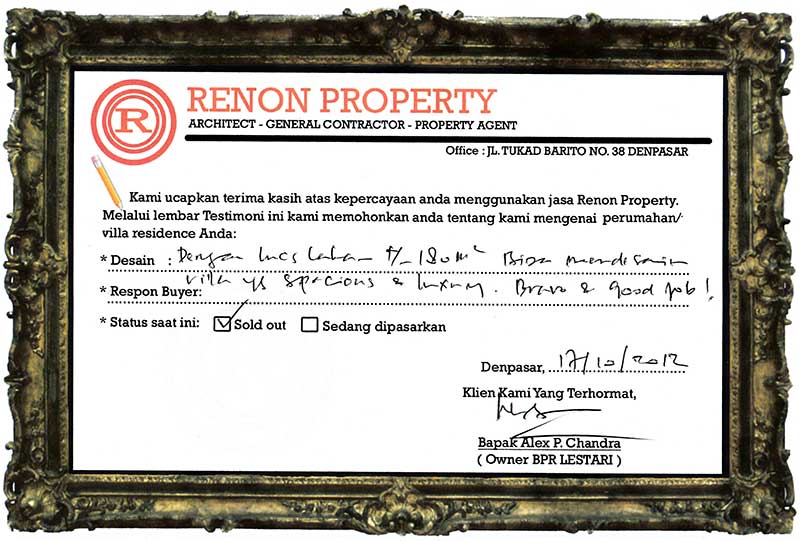 R
RENON PROPERTY
ARCHITECT - GENERAL CONTRACTOR - PROPERTY AGENT
Office : JL. TUKAD BARITO NO. 38 DENPASAR
Kami ucapkan terima kasih atas kepercayaan anda menggunakan jasa Renon Property.
Melalui lembar Testimoni ini kami memohonkan anda tentang kami mengenai perumahan/
villa residence Anda:
* Desain : Dengan luas lahan +/- 180 m² Bisa mendesain
villa yg spacious & luxury. Bravo & good job!
* Respon Buyer:
* Status saat ini: Sold out Sedang dipasarkan
Denpasar, 17/10/2012
Klien Kami Yang Terhormat,
Bapak Alex P. Chandra
( Owner BPR LESTARI )